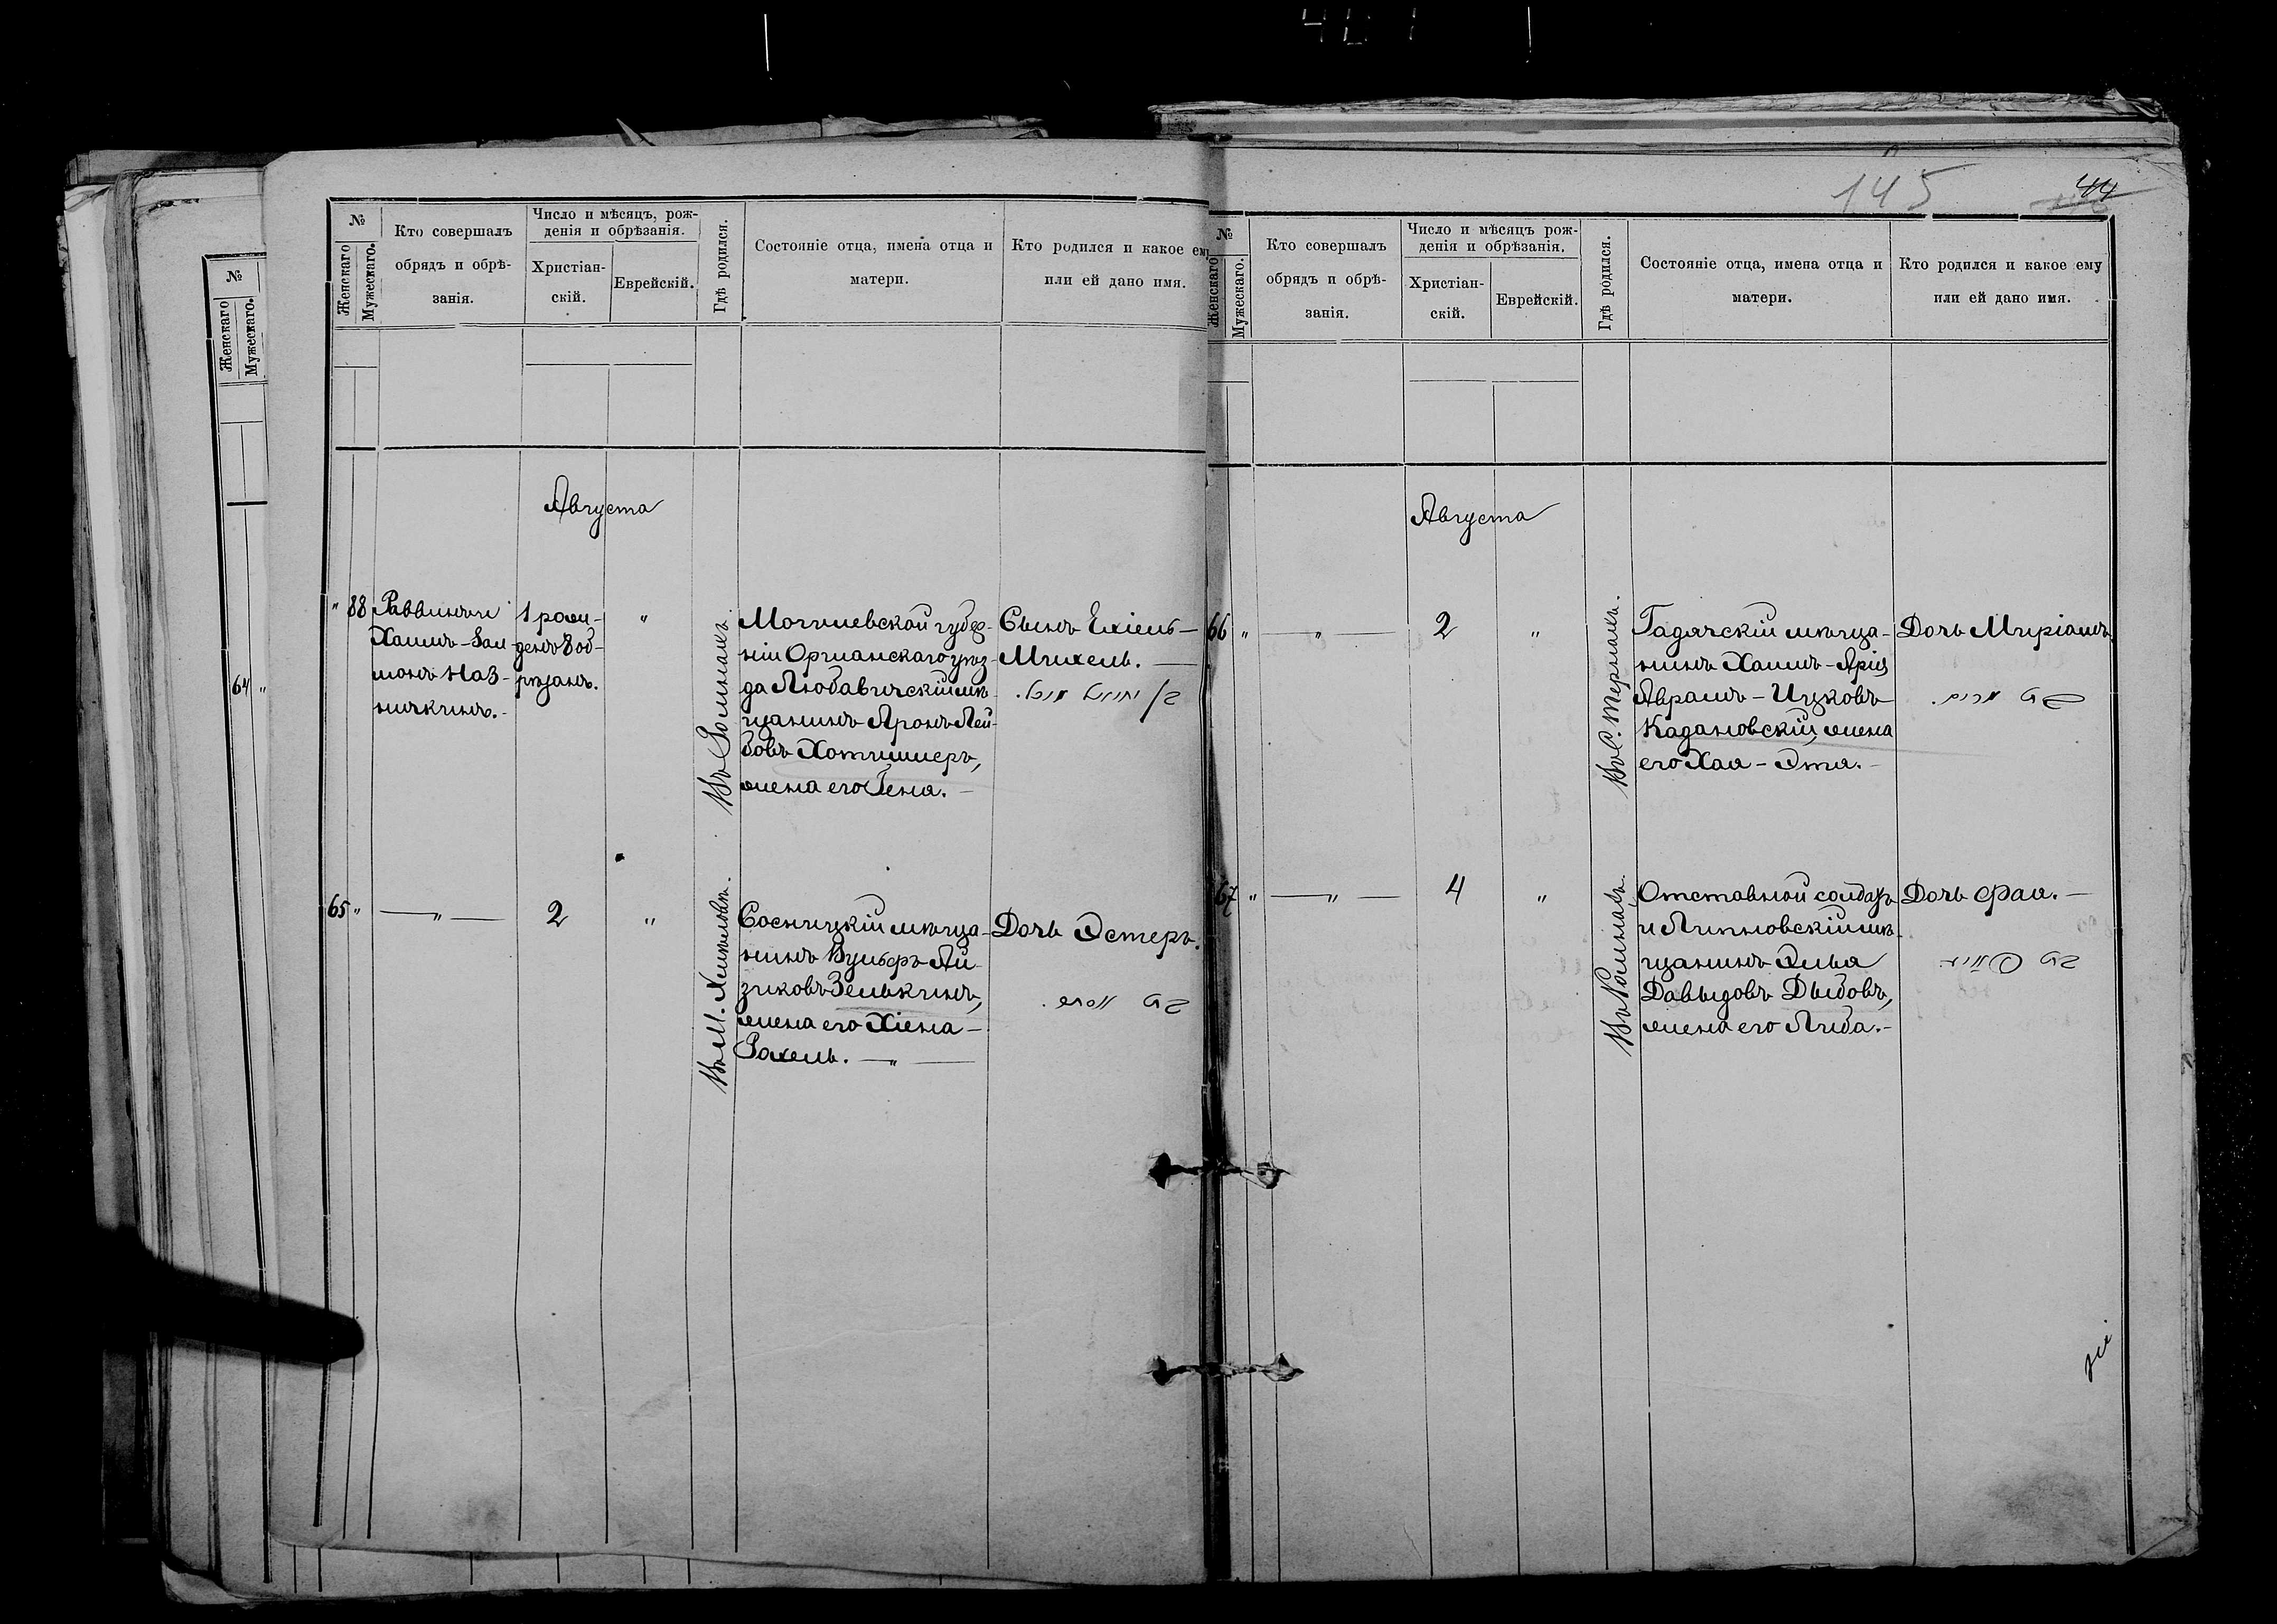 145
44
№
Женскаго
Мужескаго.
64 "
№
Женскаго
Мужескаго.
Кто совершалъ
обрядъ и обрѣ-
занія.
Число и мѣсяцъ, рож-
денія и обрѣзанія.
Христіан-
скій.
Еврейскій.
Гдѣ родился.
Состояніе отца, имена отца и
матери.
Кто родился и какое ему
или ей дано имя.
Августа
" 88
Раввинъ и
Хаимъ-Зал
монъ Наз-
ничкинъ.-
1 рож-
денъ 8 об-
рѣзанъ.
"
Въ Ромнахъ.
Могилевской губер-
ніи Оршанскаго уѣз-
да Любавичскій мѣ-
щанинъ Аронъ Лей-
бовъ Хотишмеръ,
жена его Гена.-
Сынъ Ехіель-
Михель.-
65 "
— " —
2
"
Въ М. Хмеловѣ.
Сосницкій мѣща-
нинъ Вульфъ Ай-
зиковъ Зелькинъ,
жена его Хіена-
Рахель. — " —
Дочь Эстеръ.
בת אסתר.
№
Женскаго
Мужескаго.
Кто совершалъ
обрядъ и обрѣ-
занія.
Число и мѣсяцъ рож-
денія и обрѣзанія.
Христіан-
скій.
Еврейскій.
Гдѣ родился.
Состояніе отца, имена отца и
матери.
Кто родился и какое ему
или ей дано имя.
Августа
66 "
— " —
2
"
Въ С. Терналъ.
Гадячскій мѣща-
нинъ Хаимъ-Арія
Аврамъ-Ицковъ
Кадановскій, жена
его Хая-Эта.-
Дочь Миріамъ.
בת מרים.
67 "
— " —
4
"
Въ Ромнахъ.
Отставной солдатъ
и Липновскій мѣ-
щанинъ Элья
Давыдовъ Дыбовъ,
жена его Либа.-
Дочь Фая.-